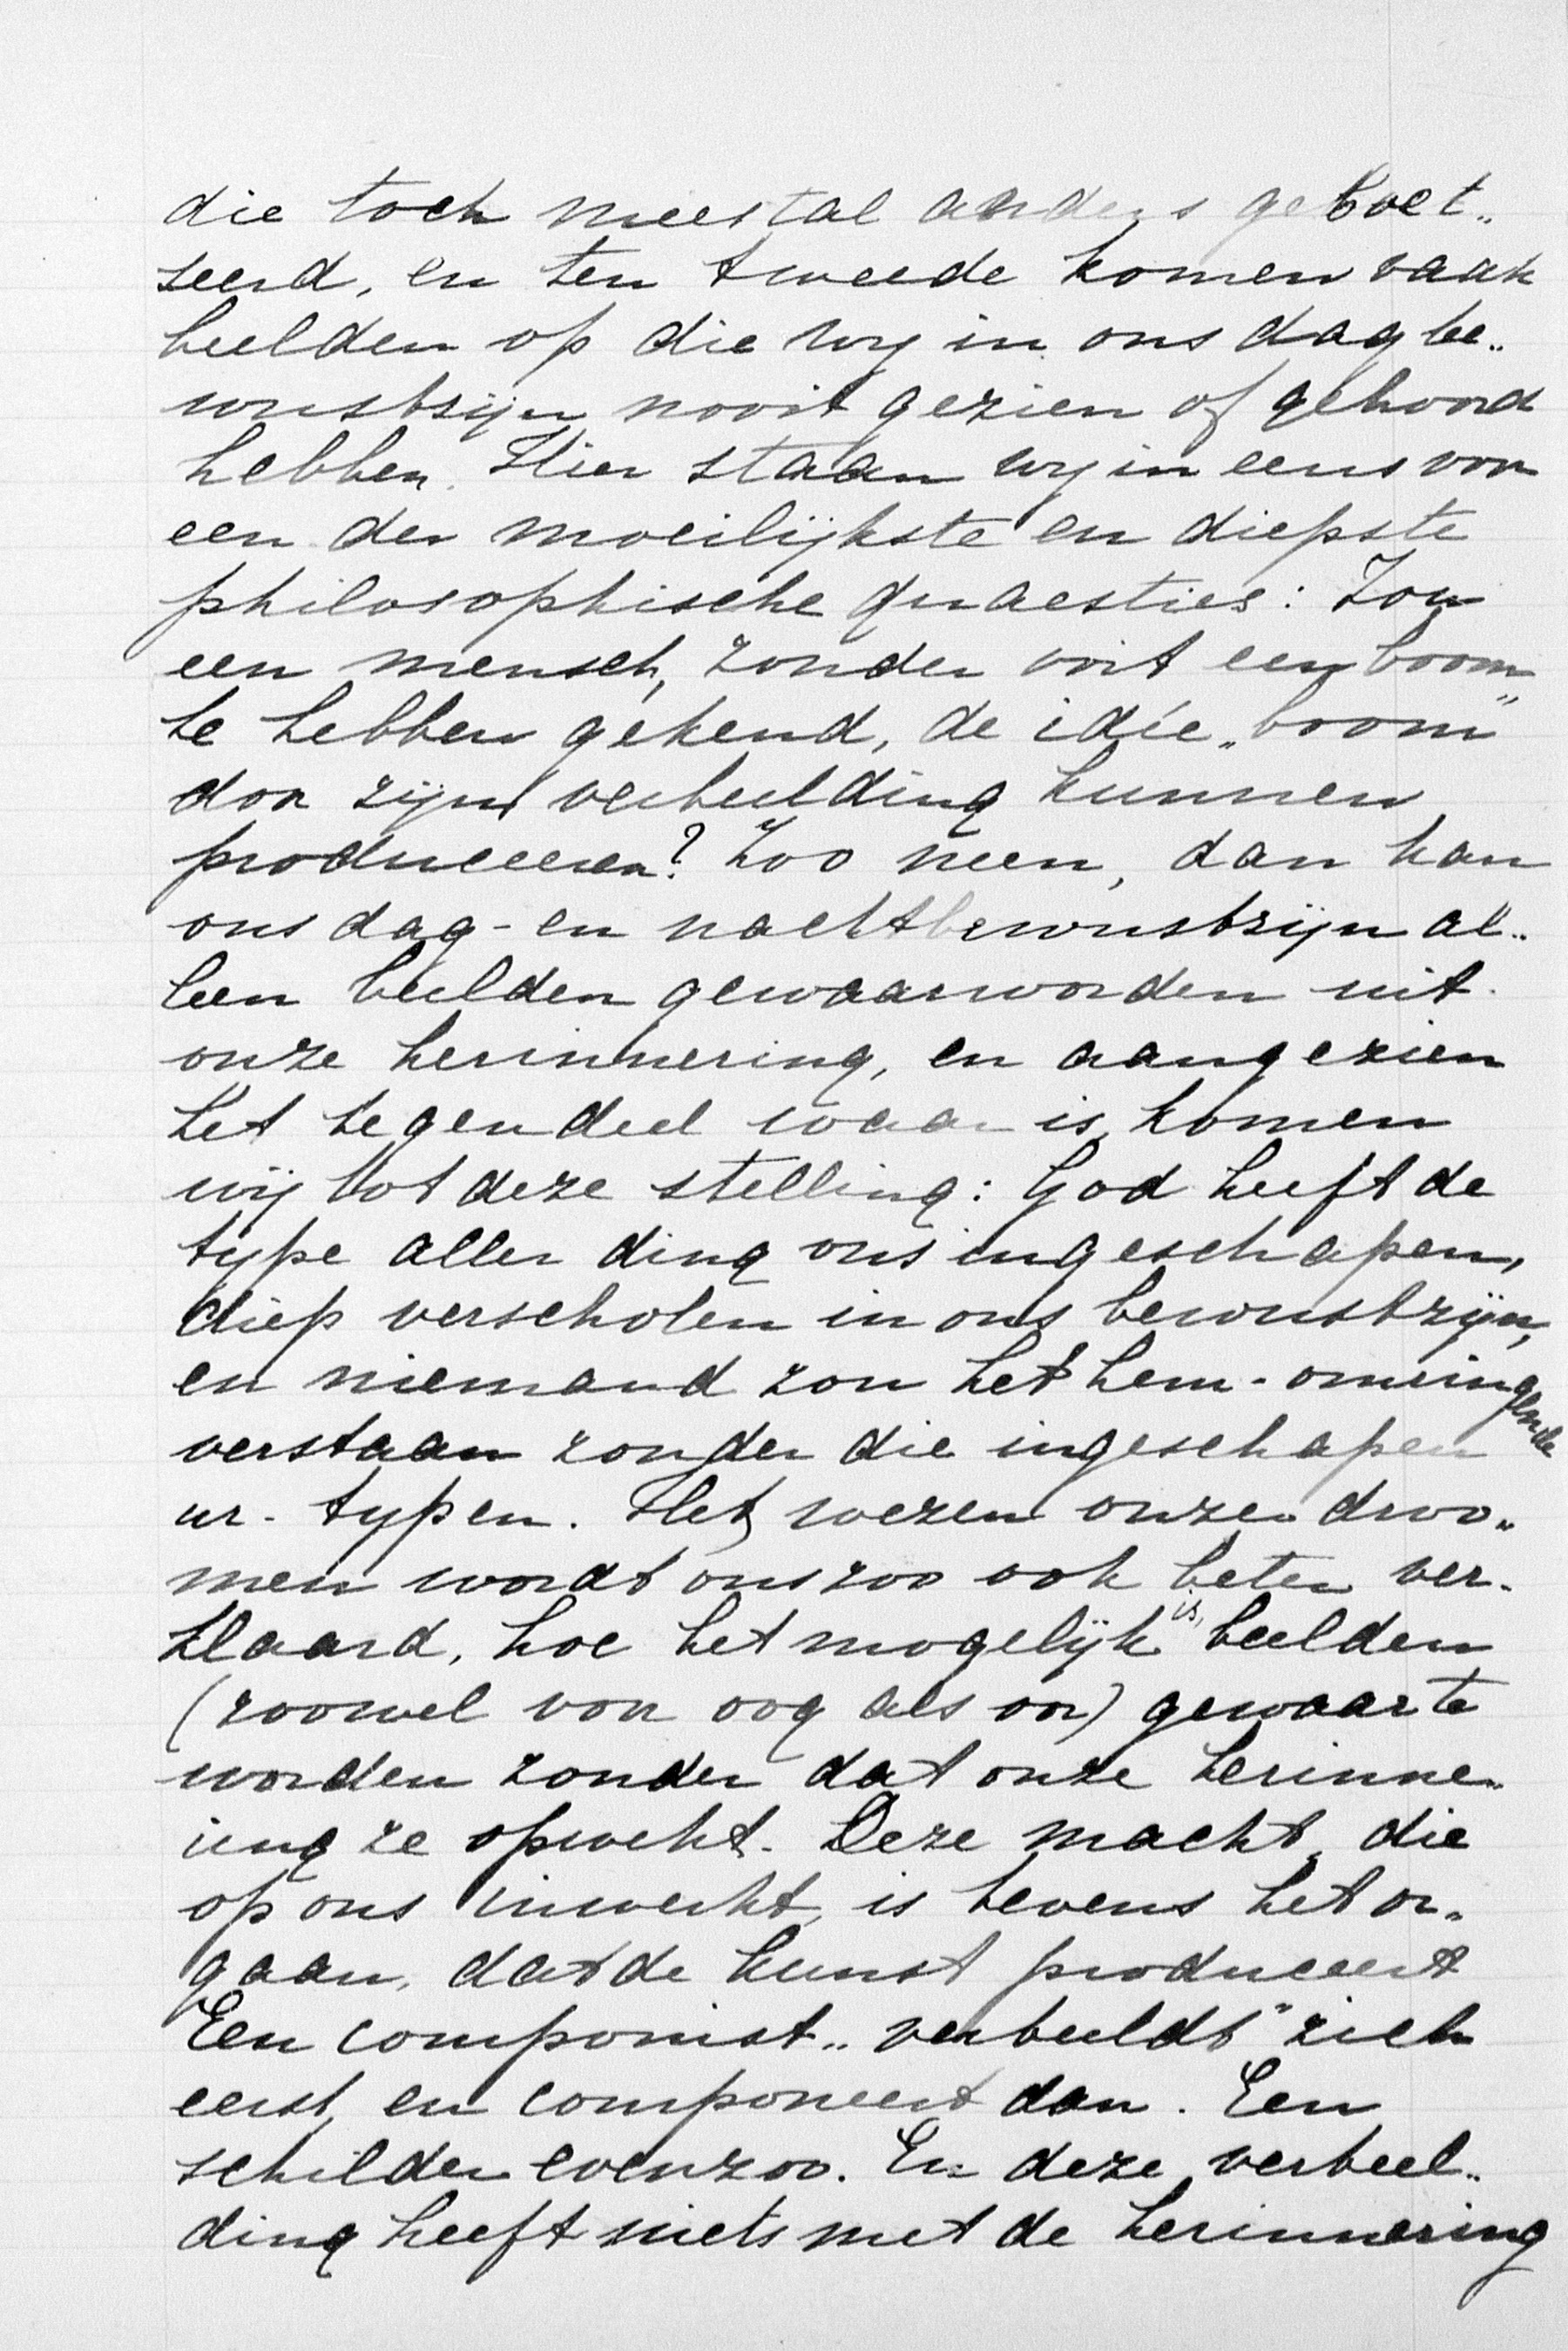 die toch meestal anders geboet„
seerd, en ten tweede komen vaak
beelden op die wy in ons dagbe„
wustzijn nooit gezien of gehoord
hebben. Hier staan wy in eens voor
een der moeilijkste en diepste
philosophische quaesties: Zou
een mensch, zonder ooit een boom
te hebben gekend, de idée „boom"
door zijn verbeelding kunnen
produceeren? Zoo neen, dan kan
ons dag- en nachtbewustzijn al„
leen beelden gewaarworden uit
onze herinnering, en aangezien
het tegendeel waar is, komen
wij tot deze stelling: God heeft de
type aller ding ons ingeschapen,
diep verscholen in ons bewustzijn,
en niemand zou het hem-omringende
verstaan zonder die ingeschapen
ur-typen. Het wezen onzer droo„
men wordt ons zoo ook beter ver-
klaard, hoe het mogelijk is, beelden
(zoowel voor oog als oor) gewaar te
worden zonder dat onze herinne-
ring ze opwekt. Deze macht, die
op ons inwerkt, is tevens het or„
gaan, dat de kunst produceert
Een componist „verbeeldt" zich
eerst, en componeert dan. Een
schilder evenzoo. En deze verbeel„
ding heeft niets met de herinnering